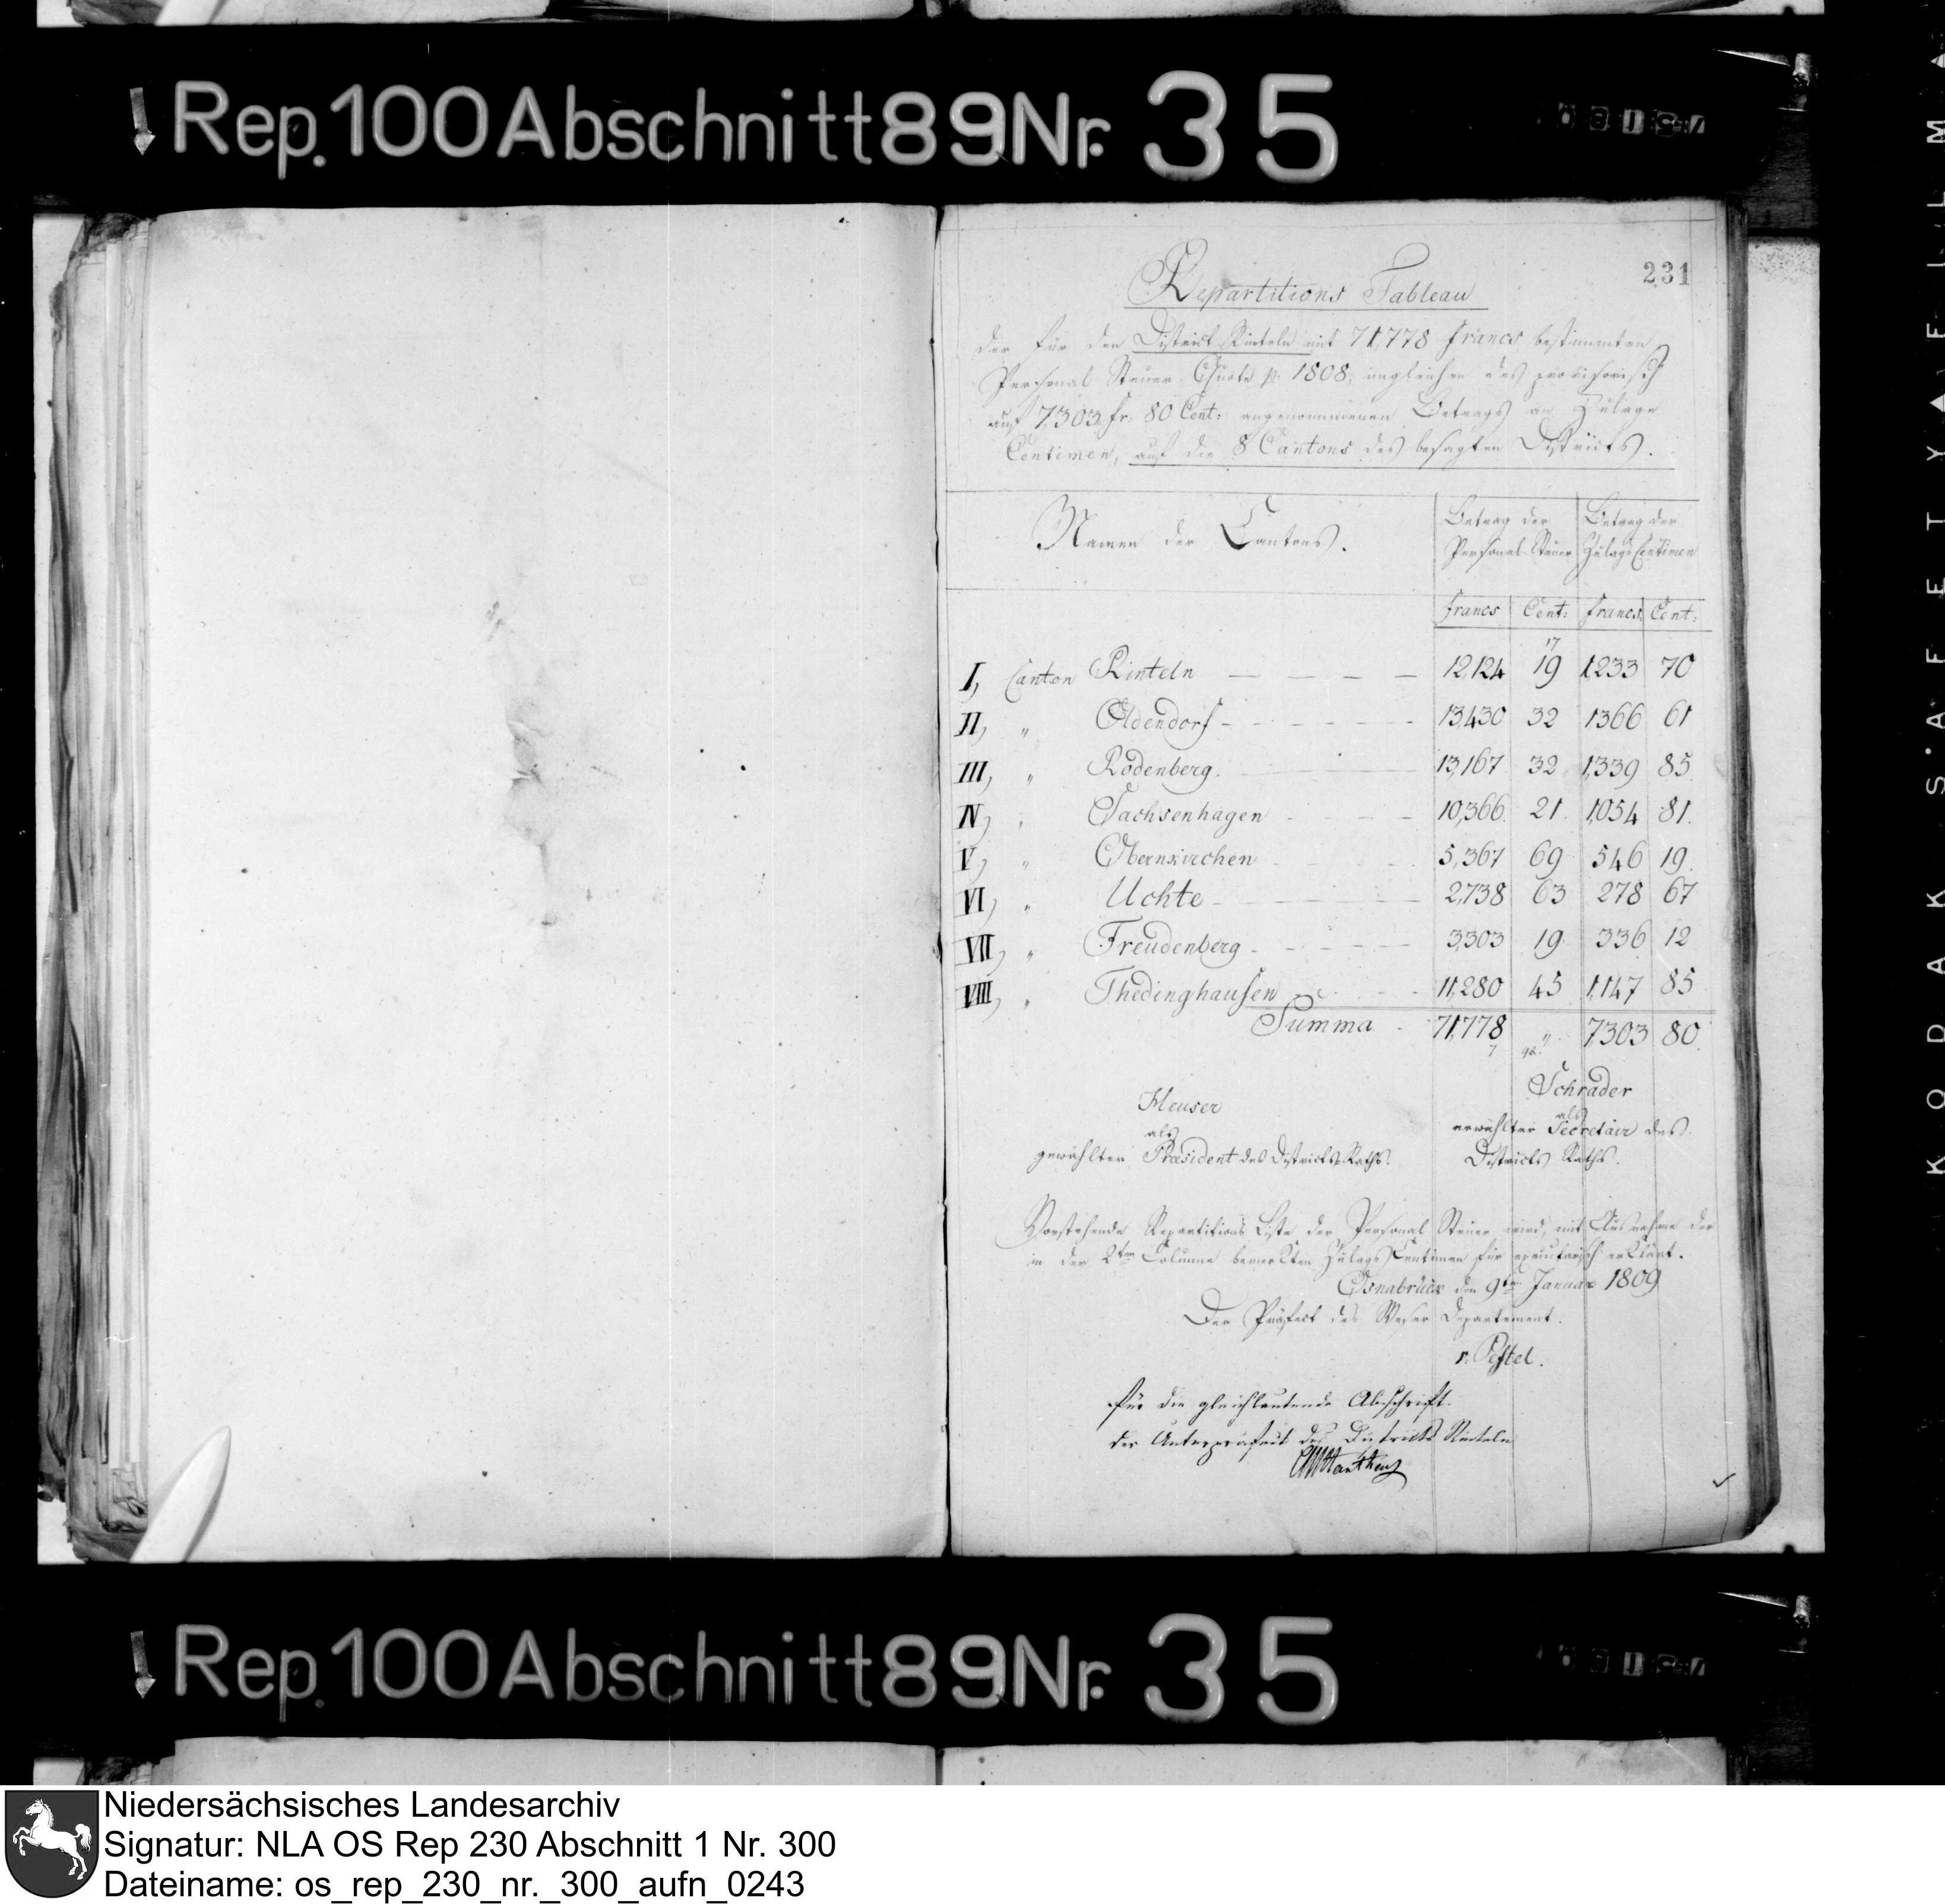 Rep. 100 Abschnitt 89 Nr. 35
231
Repartitions Tableau
der für den District Rinteln mit 71,778 francs bestimmten
Personal Steuer Quote p. 1808, imgleichen des provisorisch
auf 7303 fr. 80 Cent: angenommenen Betrags an Zulage
Centimen, auf die 8 Cantons des besagten Districts.
Namen der Cantons.
Betrag der Personal-Steuer
Betrag der Zulags Centimen
francs Cent: francs Cent:
17
I, Canton Rinteln 12,124 19 1,233 70
II, " Oldendorf 13,430 32 1366 61
III, " Rodenberg. 13,167 32 1,339 85
IV, " Sachsenhagen 10,366 21 1,054 81.
V, " Obernkirchen 5,367 69 546 19.
VI, " Uchte 2,738 63 278 67
VII, " Freudenberg 3,303 19 336 12
VIII, " Thedinghausen 11,280 45 1,147 85
Summa 71,778 " 7,303 80.
7 98.
Heuser
als
gewählter Præsident des Districts Raths.
Schrader
als
erwählter Secretair des
Districts Raths.
Vorstehende Repartitions Liste der Personal Steuer wird, mit Ausnahme der
in der 2ten Columne bemerkten Zulags Centimen für executorisch erklärt.
Osnabrück den 9ten Januar 1809
Der Präfect des Weser Departement.
v. Pestel.
Für die gleichlautende Abschrift.
der Unterpräfect des Districts Rinteln
Rep. 100 Abschnitt 89 Nr. 35
KODAK SAFETY FILM
Niedersächsisches Landesarchiv
Signatur: NLA OS Rep 230 Abschnitt 1 Nr. 300
Dateiname: os_rep_230_nr._300_aufn_0243